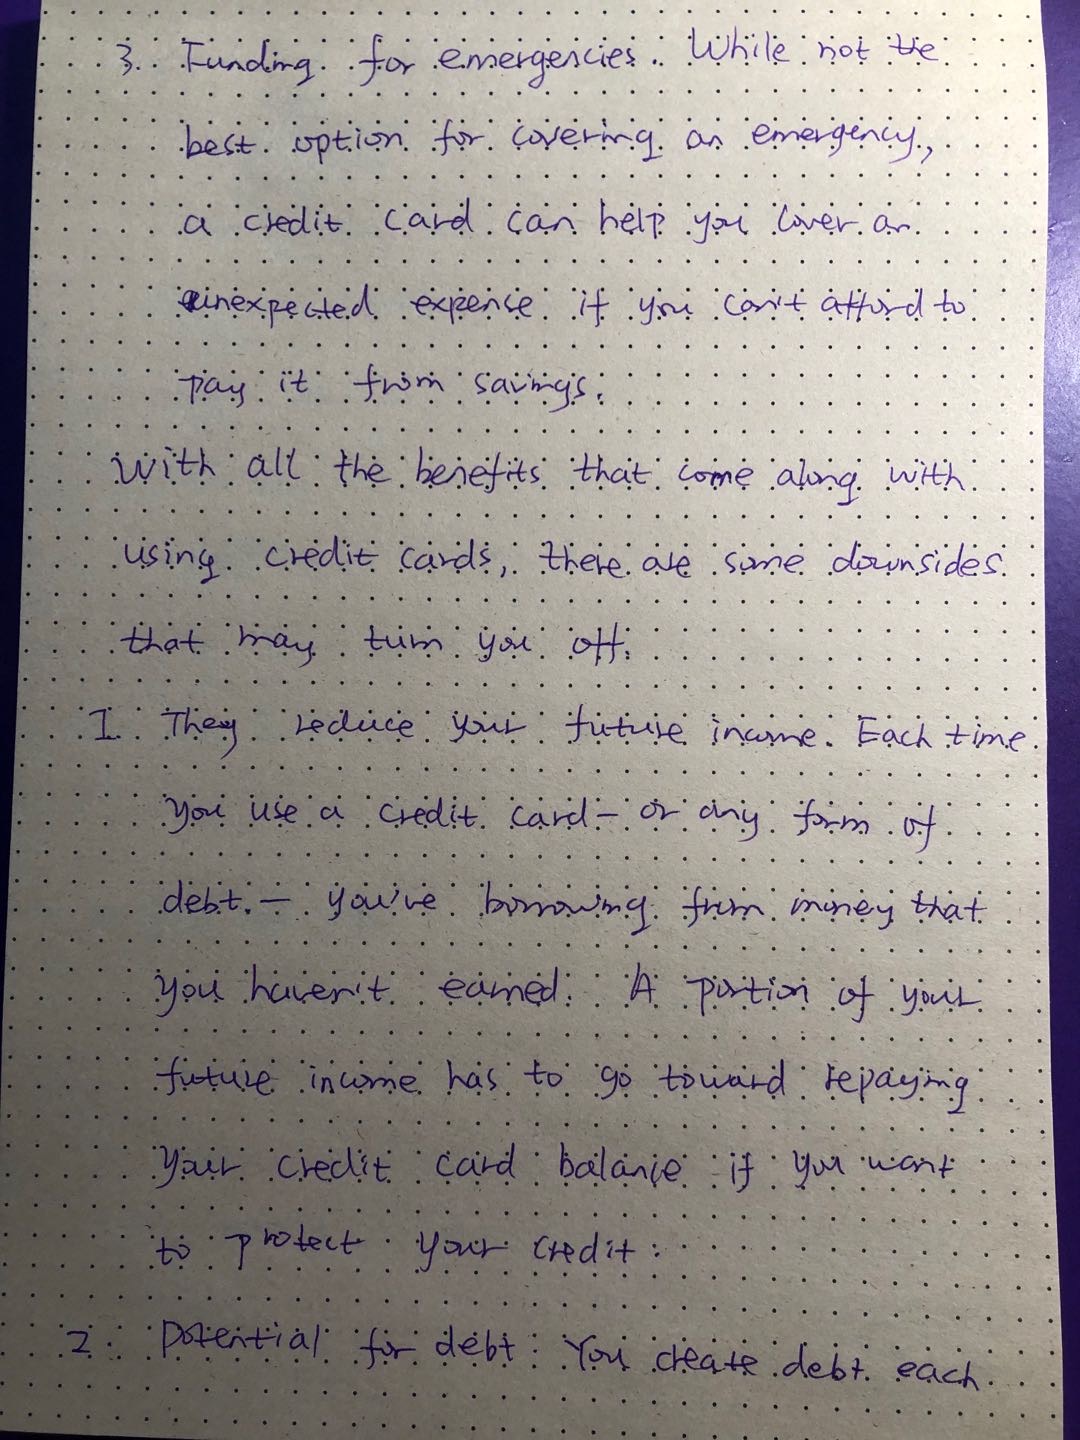 3. Funding for emergencies. While not the
best option for covering an emergency,
a credit card can help you cover an
unexpected expense if you can't afford to
pay it from savings.
With all the benefits that come along with
using credit cards, there are some downsides
that may turn you off.
1. They reduce your future income. Each time
you use a credit card - or any form of
debt. - you've borrowing from money that
you haven't earned. A portion of your
future income has to go toward repaying
your credit card balance if you want
to protect your credit.
2. Potential for debt. You create debt each